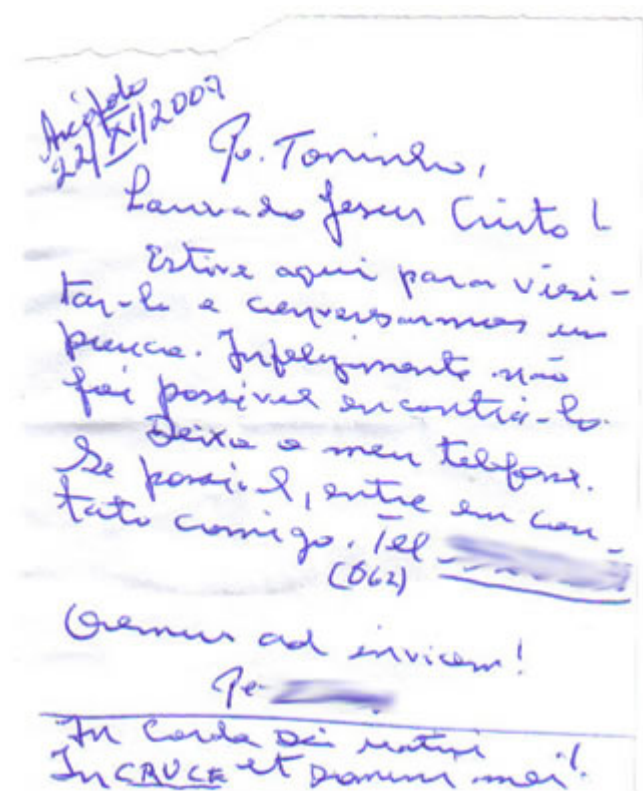 22/XI/2007
Pe. Toninho,
Louvado Jesus Cristo!
Estive aqui para visi-
tar-lo e conversarmos um
pouco. Infelizmente não
foi possível encontrá-lo.
Deixo o meu telefone.
Se possível, entre em con-
tato comigo. Tel
(062)
Oremus ad invicem!
Pe.
In Corde
In CRUCE et Domini mei!